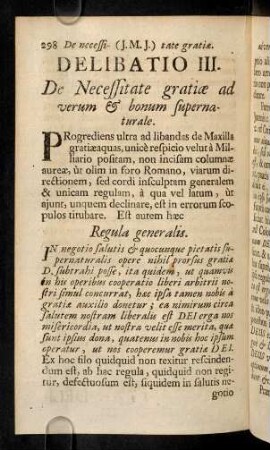 298 De necessi- (J. M. J.) tate gratiæ.
DELIBATIO III.
De Necessitate gratiæ ad
verum & bonum superna-
turale.
PRogrediens ultra ad libandas de Maxilla
gratiæ aquas, unicè respicio velut à Mil-
liario positam, non incisam columnæ
aureæ, ut olim in foro Romano, viarum di-
rectionem, sed cordi insculptam generalem
& unicam regulam, à qua vel latum, ut
ajunt, unguem declinare, est in errorum sco-
pulos titubare. Est autem hæc
Regula generalis.
IN negotio salutis & quocunque pietatis su-
pernaturalis opere nihil prorsus gratia
D. subtrahi posse, ita quidem, ut quamvis
in his operibus cooperatio liberi arbitrii no-
stri simul concurrat, hæc ipsa tamen nobis à
gratiæ auxilio donetur; ea nimirum circa
salutem nostram liberalis est DEI erga nos
misericordia, ut nostra velit esse merita, quæ
sunt ipsius dona, quatenus in nobis hoc ipsum
operatur, ut nos cooperemur gratiæ DEI.
Ex hoc filo quidquid non texitur rescinden-
dum est, ab hac regula, quidquid non regi-
tur, defectuosum est, siquidem in salutis ne-
gotio